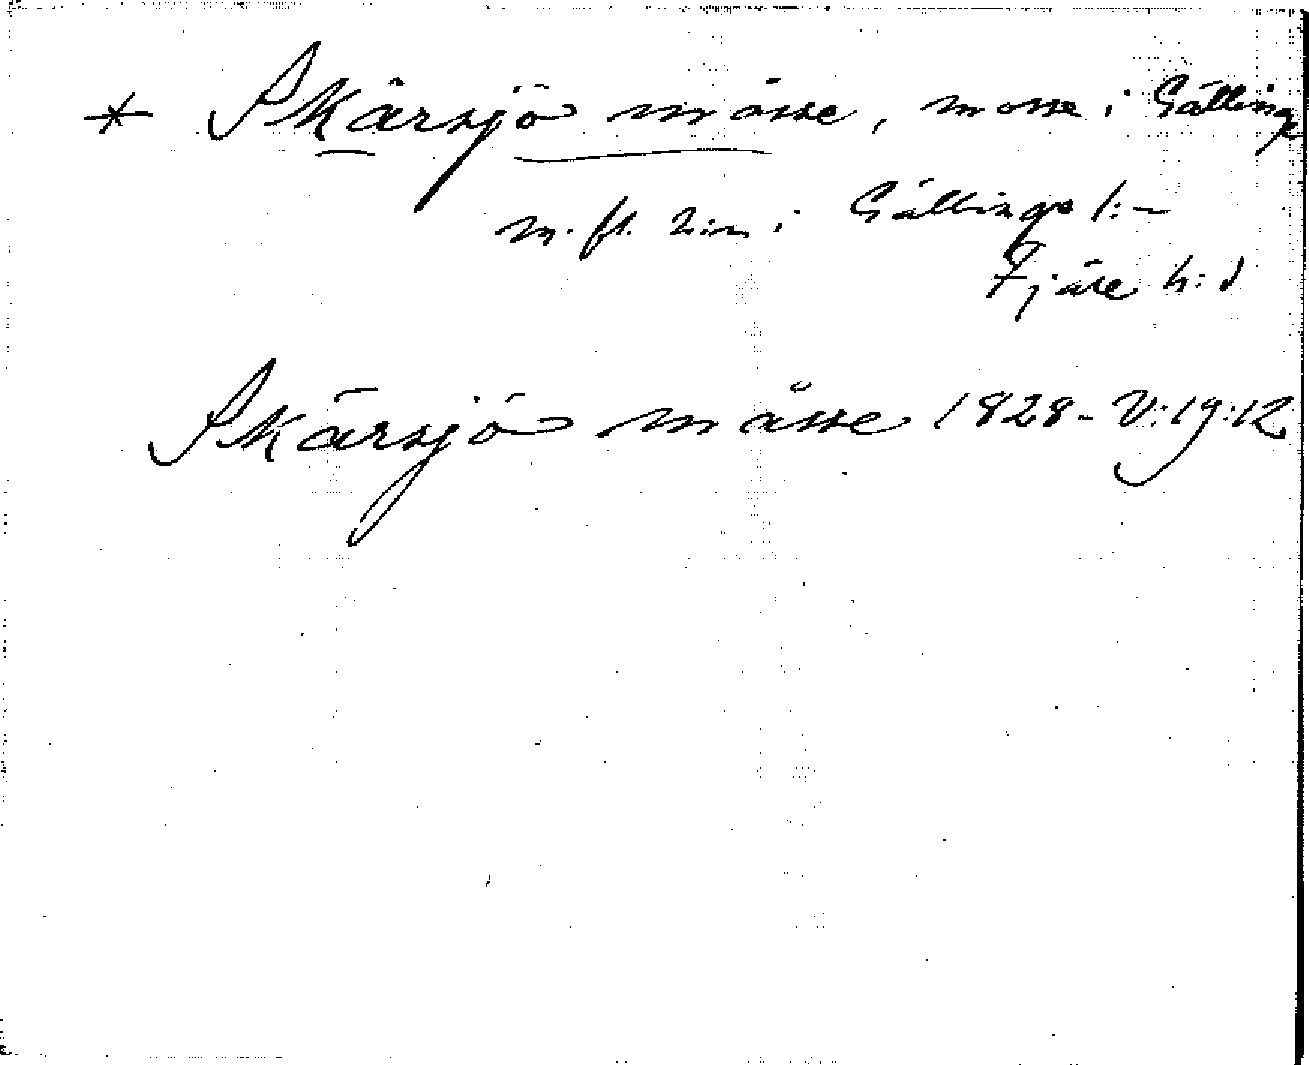 * Skärsjö måsse, mosse i Gällinge
m. fl. i Gällinge s:n
Fjäre h:d
Skärsjö måsse 1828 - V:19:12